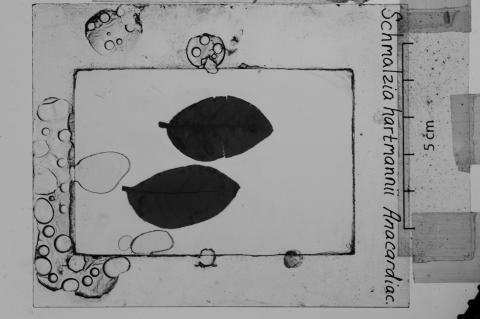 Schmalzia hartmannii Anacardiac.
5 cm